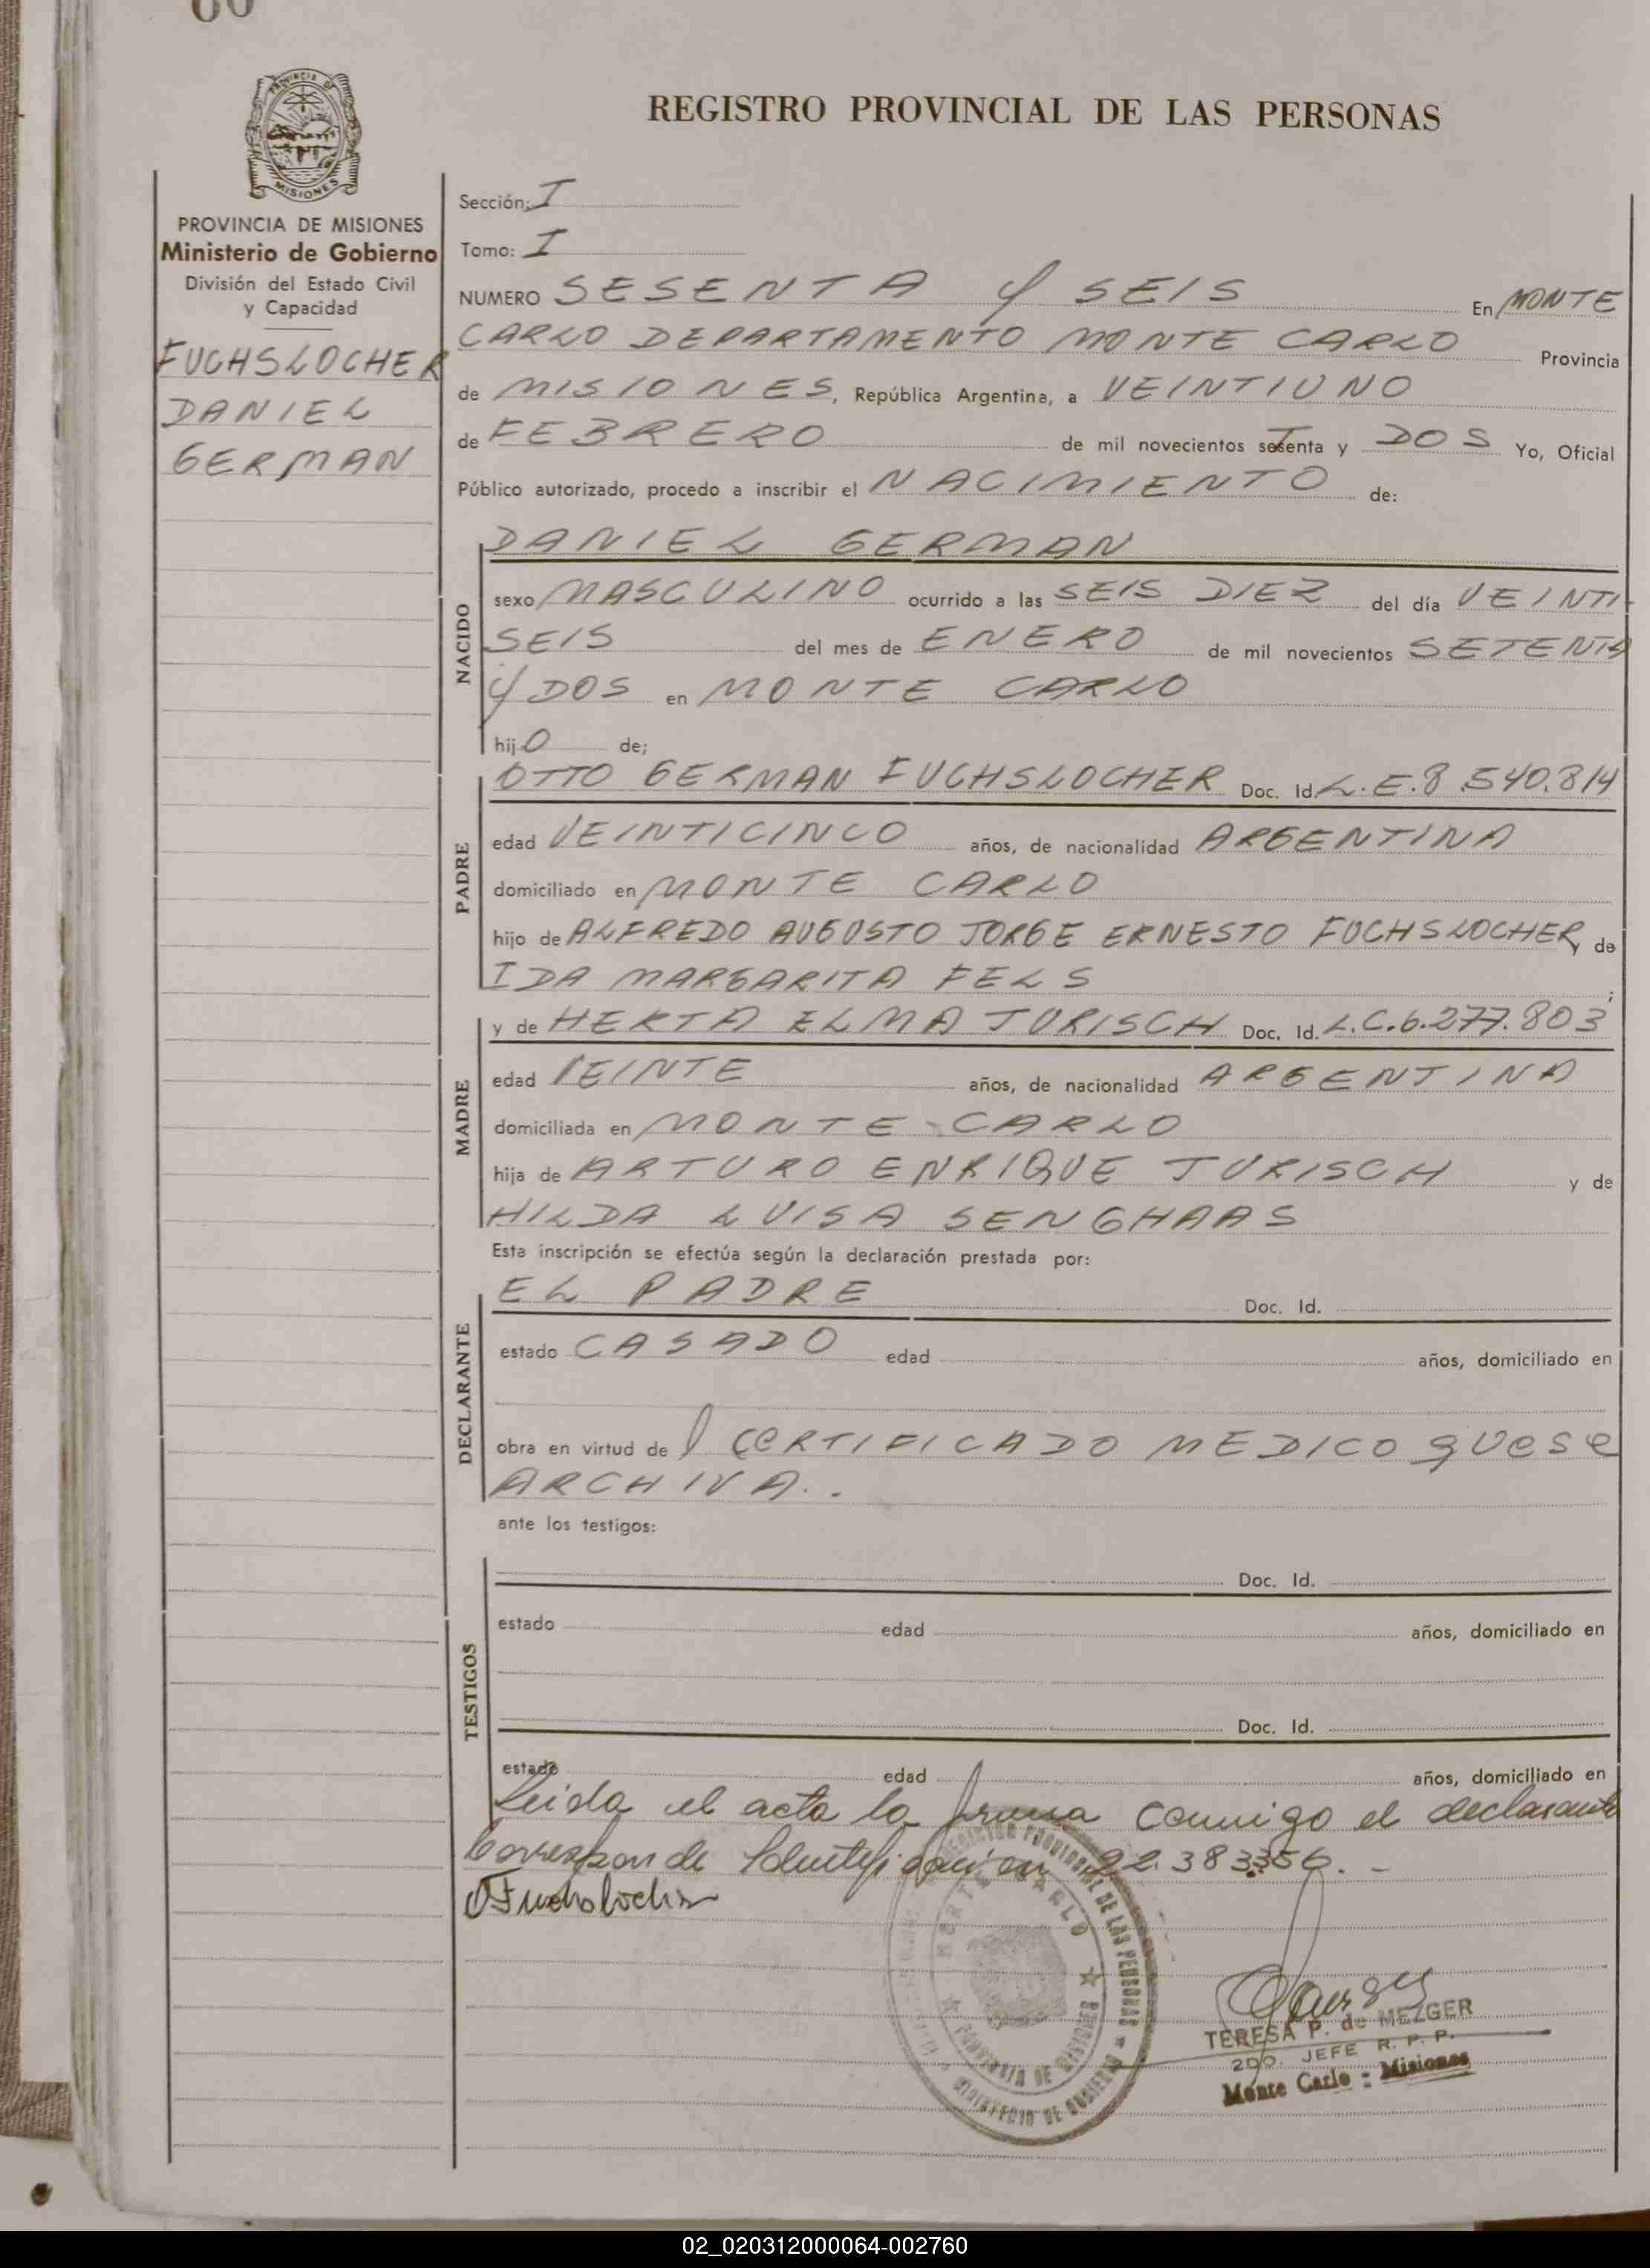 PROVINCIA DE MISIONES
Ministerio de Gobierno
División del Estado Civil
y Capacidad
FUCHSLOCHER
DANIEL
GERMAN
REGISTRO PROVINCIAL DE LAS PERSONAS
Sección: I
Tomo: I
NUMERO SESENTA Y SEIS En MONTE
CARLO DEPARTAMENTO MONTE CARLO Provincia
de MISIONES, República Argentina, a VEINTIUNO
de FEBRERO de mil novecientos setenta y DOS Yo, Oficial
Público autorizado, procedo a inscribir el NACIMIENTO de:
NACIDO
DANIEL GERMAN
sexo MASCULINO ocurrido a las SEIS DIEZ del día VEINTI-
SEIS del mes de ENERO de mil novecientos SETENTA
Y DOS en MONTE CARLO
hijO de;
PADRE
OTTO GERMAN FUCHSLOCHER Doc. Id. L.E.8.540.814
edad VEINTICINCO años, de nacionalidad ARGENTINA
domiciliado en MONTE CARLO
hijo de ALFREDO AUGUSTO JORGE ERNESTO FUCHSLOCHER y de
IDA MARGARITA FELS ;
MADRE
y de HERTA ELMA JURISCH Doc. Id. L.C.6.277.803
edad VEINTE años, de nacionalidad ARGENTINA
domiciliada en MONTE-CARLO
hija de ARTURO ENRIQUE JURISCH y de
HILDA LUISA SENGHAAS
Esta inscripción se efectúa según la declaración prestada por:
DECLARANTE
EL PADRE Doc. Id.
estado CASADO edad años, domiciliado en
obra en virtud de l CERTIFICADO MEDICO que se
ARCHIVA..
ante los testigos:
TESTIGOS
Doc. Id.
estado edad años, domiciliado en
Doc. Id.
estado edad años, domiciliado en
Leida el acta la firma conmigo el declarante
Corresponde Identificación 22.383356.-
O Fuchslocher
REGISTRO PROVINCIAL DE LAS PERSONAS
MINISTERIO DE GOBIERNO
MONTE CARLO
PROVINCIA DE MISIONES
TERESA P. de MEZGER
2DO. JEFE R. P. P.
Monte Carlo - Misiones
02_020312000064-002760